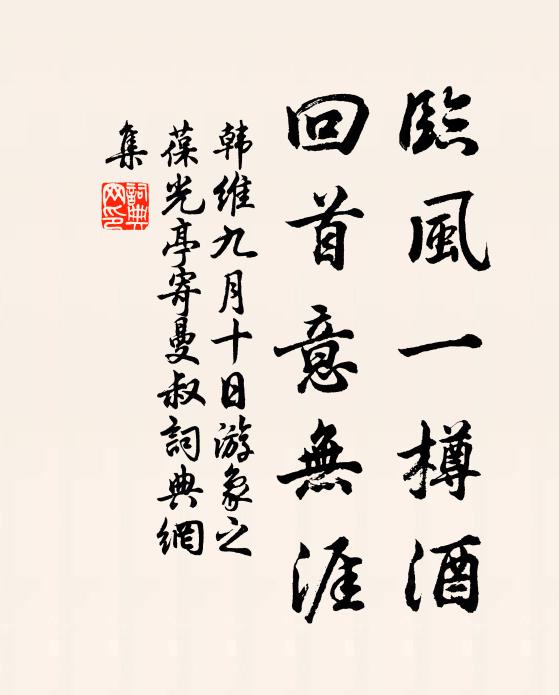 臨風一樽酒
回首意無涯
韩維九月十日游象之
葆光亭寄曼叔詞典網
集
詞典
网印